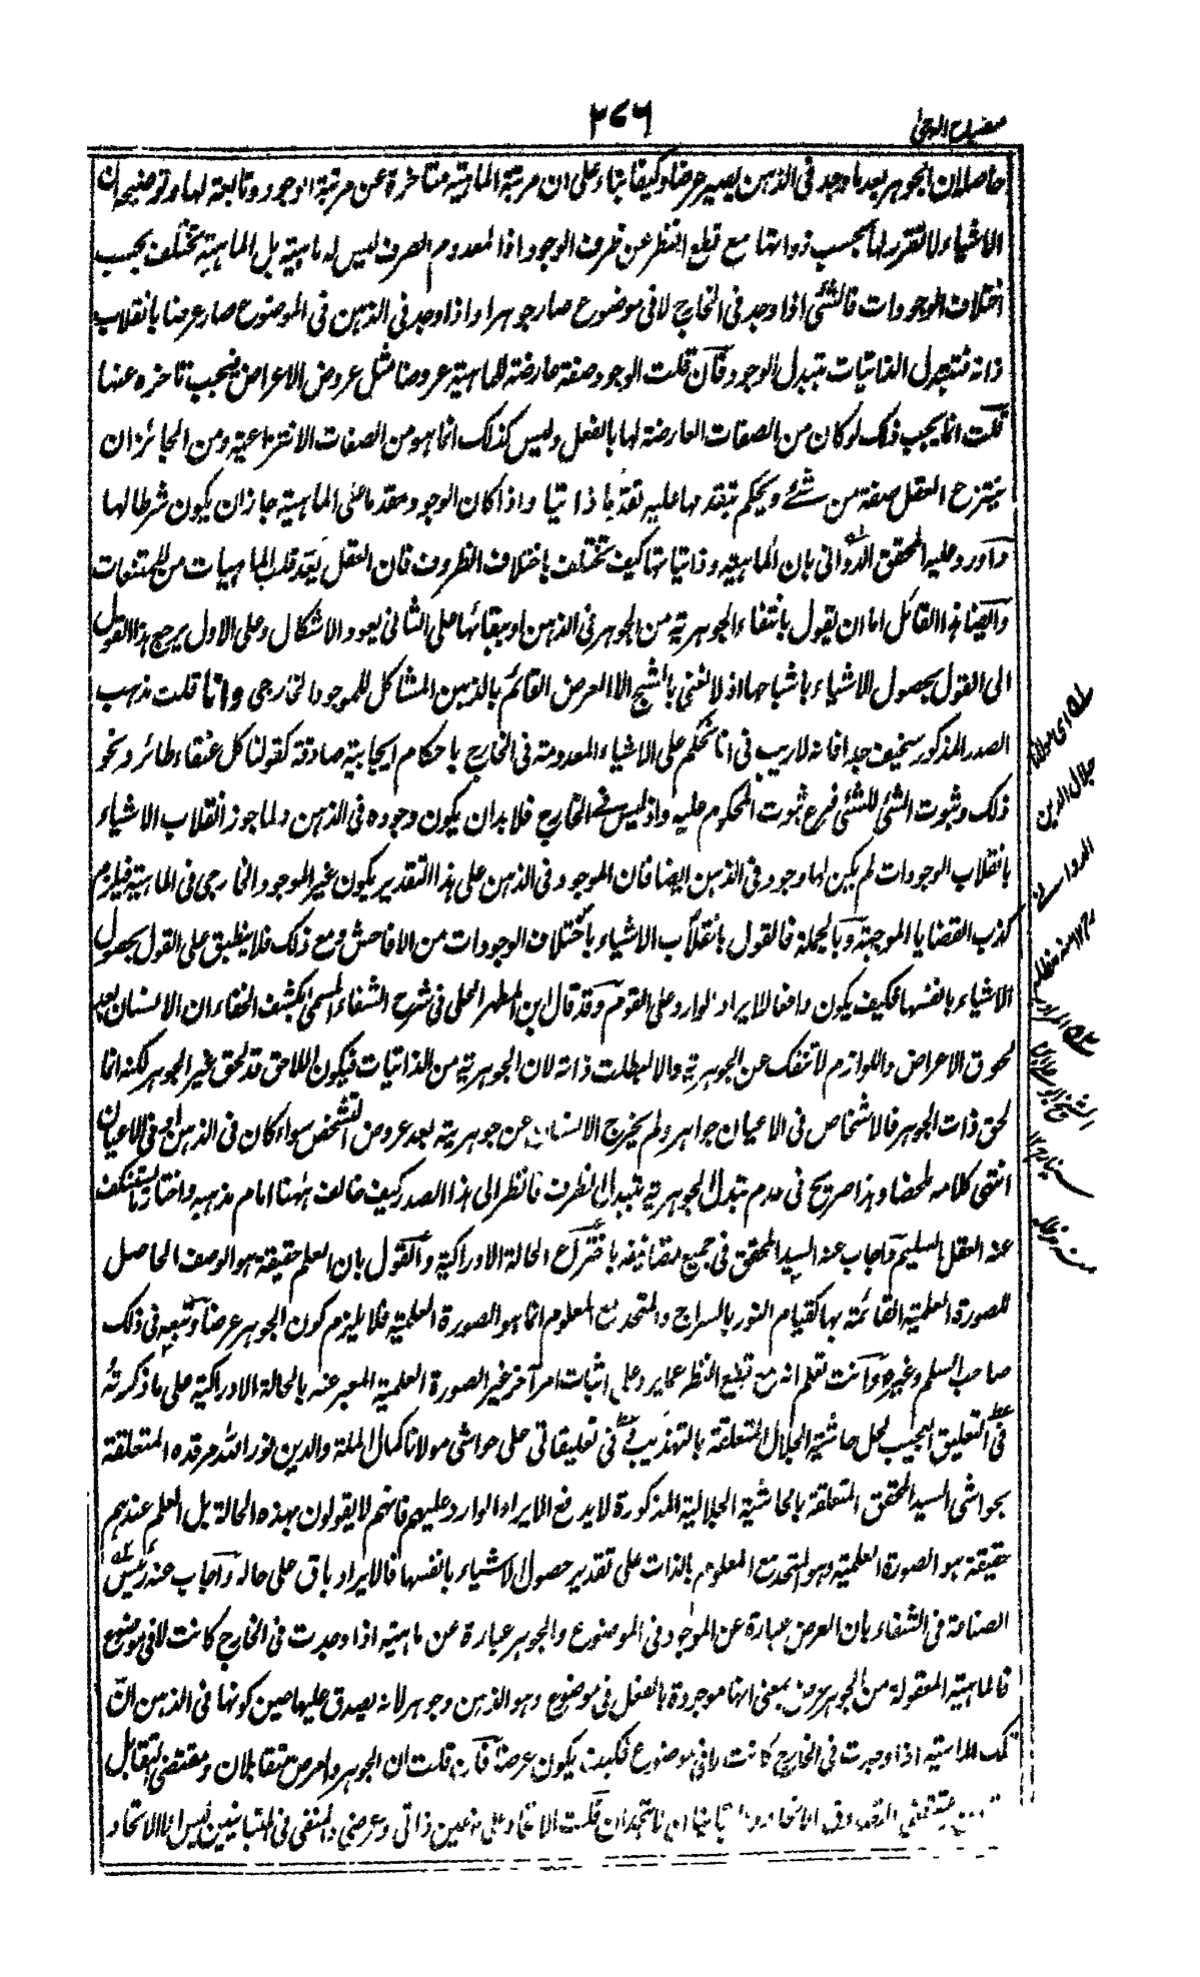 مصباح الدجى
۲۷۶
حاصله ان الجوهر بعد ما وجد فى الذهن يصير عرضا وكيفا بناء على ان مرتبة الماهية متاخرة عن مرتبة الوجود وتابعة لها وتوضيحه ان
الاشياء لا تقرر لها بحسب ذواتها مع قطع النظر عن ظرف الوجود اذ المعدوم الصرف ليس له ماهية بل الماهية تختلف بحسب
اختلاف الوجودات فالشئ اذا وجد فى الخارج لا فى موضوع صار جوهرا واذا وجد فى الذهن فى الموضوع صار عرضا بانقلاب
ذاته فتتبدل الذاتيات بتبدل الوجود فان قلت الوجود صفة عارضة للماهية عروضا مثل عروض الاعراض فيجب تاخره عنها
قلت انما يجب ذلك لو كان من الصفات العارضة لها بالفعل وليس كذلك انما هو من الصفات الانتزاعية ومن الجائز ان
ينتزع العقل صفة من شئ ويحكم بتقدمها عليه تقدما ذاتيا واذا كان الوجود مقدما على الماهية جاز ان يكون شرطا لها
واورد عليه المحقق الدوانى بان الماهية وذاتياتها كيف تختلف باختلاف الظروف فان العقل يعد قلب الماهيات من الممتنعات
وايضا هذا القائل اما ان يقول بانتفاء الجوهرية من الجوهر فى الذهن او ببقائها على الثانى يعود الاشكال وعلى الاول يرجع هذا القول
الى القول بحصول الاشياء باشباحها اذ لا نعنى بالشبح الا العرض القائم بالذهن المشاكل للموجود الخارجى وانا قلت مذهب
الصدر المذكور سخيف جدا فانه لا ريب فى انا نحكم على الاشياء المعدومة فى الخارج باحكام ايجابية صادقة كقولنا كل عنقاء طائر ونحو
ذلك وثبوت الشئ للشئ فرع ثبوت المحكوم عليه واذ ليس فى الخارج فلا بد ان يكون وجوده فى الذهن ولما جوز انقلاب الاشياء
بانقلاب الوجودات لم يكن لها وجود فى الذهن ايضا فان الموجود فى الذهن على هذا التقدير يكون غير الموجود الخارجى فى الماهية فيلزم
كذب القضايا الموجبة وبالجملة فالقول بانقلاب الاشياء باختلاف الوجودات من الافاحش ومع ذلك فلا ينطبق على القول بحصول
الاشياء بانفسها فكيف يكون دافعا للايراد الوارد على القوم وقد قال ابن المطهر الحلى فى شرح الشفاء المسمى بكشف الخفاء ان الانسان بعد
لحوق الاعراض واللوازم لا تنفك عن الجوهرية والا لبطلت ذاته لان الجوهرية من الذاتيات فيكون اللاحق قد لحق غير الجوهر لكنه انما
لحق ذات الجوهر فالاشخاص فى الاعيان جواهر ولم يخرج الانسان عن جوهريته بعد عروض التشخص سواء كان فى الذهن او فى الاعيان
انتهى كلامه ملخصا وهذا صريح فى عدم تبدل الجوهرية بتبدل الظرف فانظر الى هذا الصدر كيف خالف ههنا امام مذهبه واختار ما يستنكف
عنه العقل السليم واجاب عنه السيد المحقق فى جميع تصانيفه باختراع الحالة الادراكية والقول بان العلم حقيقة هو الوصف الحاصل
للصورة العلمية القائمة بها كقيام النور بالسراج والمتحد مع المعلوم انما هو الصورة العلمية فلا يلزم كون الجوهر عرضا وتبعه فى ذلك
صاحب السلم وغيره وانت تعلم انه مع قطع النظر عما يرد على اثبات امر آخر غير الصورة العلمية المعبر عنه بالحالة الادراكية على ما ذكرته
فى التعليق العجيب لحل حاشية الجلال المتعلقة بالتهذيب وفى تعليقاتى على حواشى مولانا كمال الملة والدين نور الله مرقده المتعلقة
بحواشى السيد المحقق المتعلقة بالحاشية الجلالية المذكورة لا يدفع الايراد الوارد عليهم فانهم لا يقولون بهذه الحالة بل العلم عندهم
حقيقة هو الصورة العلمية وهو المتحد مع المعلوم بالذات على تقدير حصول الاشياء بانفسها فالايراد باق على حاله واجاب عنه رئيس
الصناعة فى الشفاء بان العرض عبارة عن الموجود فى الموضوع والجوهر عبارة عن ماهية اذا وجدت فى الخارج كانت لا فى موضوع
فالماهية المعقولة من الجوهر عرض بمعنى انها موجودة بالفعل فى موضوع وهو الذهن وجوهر لانه يصدق عليها حين كونها فى الذهن ان
تلك الماهية اذا وجدت فى الخارج كانت لا فى موضوع فكيف يكون عرضا فان قلت ان الجوهر والعرض متقابلان ومقتضى التقابل
ان يتحدان قلت الاتحاد على نوعين ذاتى وعرضى والمنفى فى المتباينين ليس الا الاتحاد
له اى مولانا
جلال الدين
الدوانى
۱۲ منه مدظله
له المراد به
الشيخ ابو على
سينا
منه مدظله